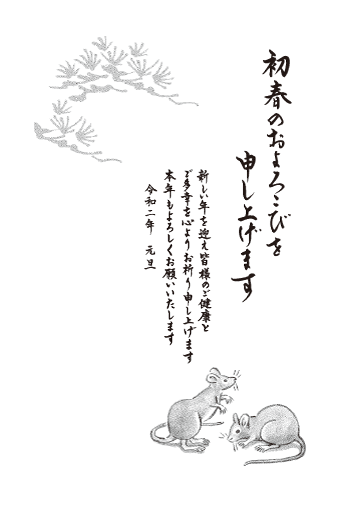 初春のおよろこびを
申し上げます
新しい年を迎え皆様のご健康と
ご多幸を心よりお祈り申し上げます
本年もよろしくお願いいたします
令和二年 元旦